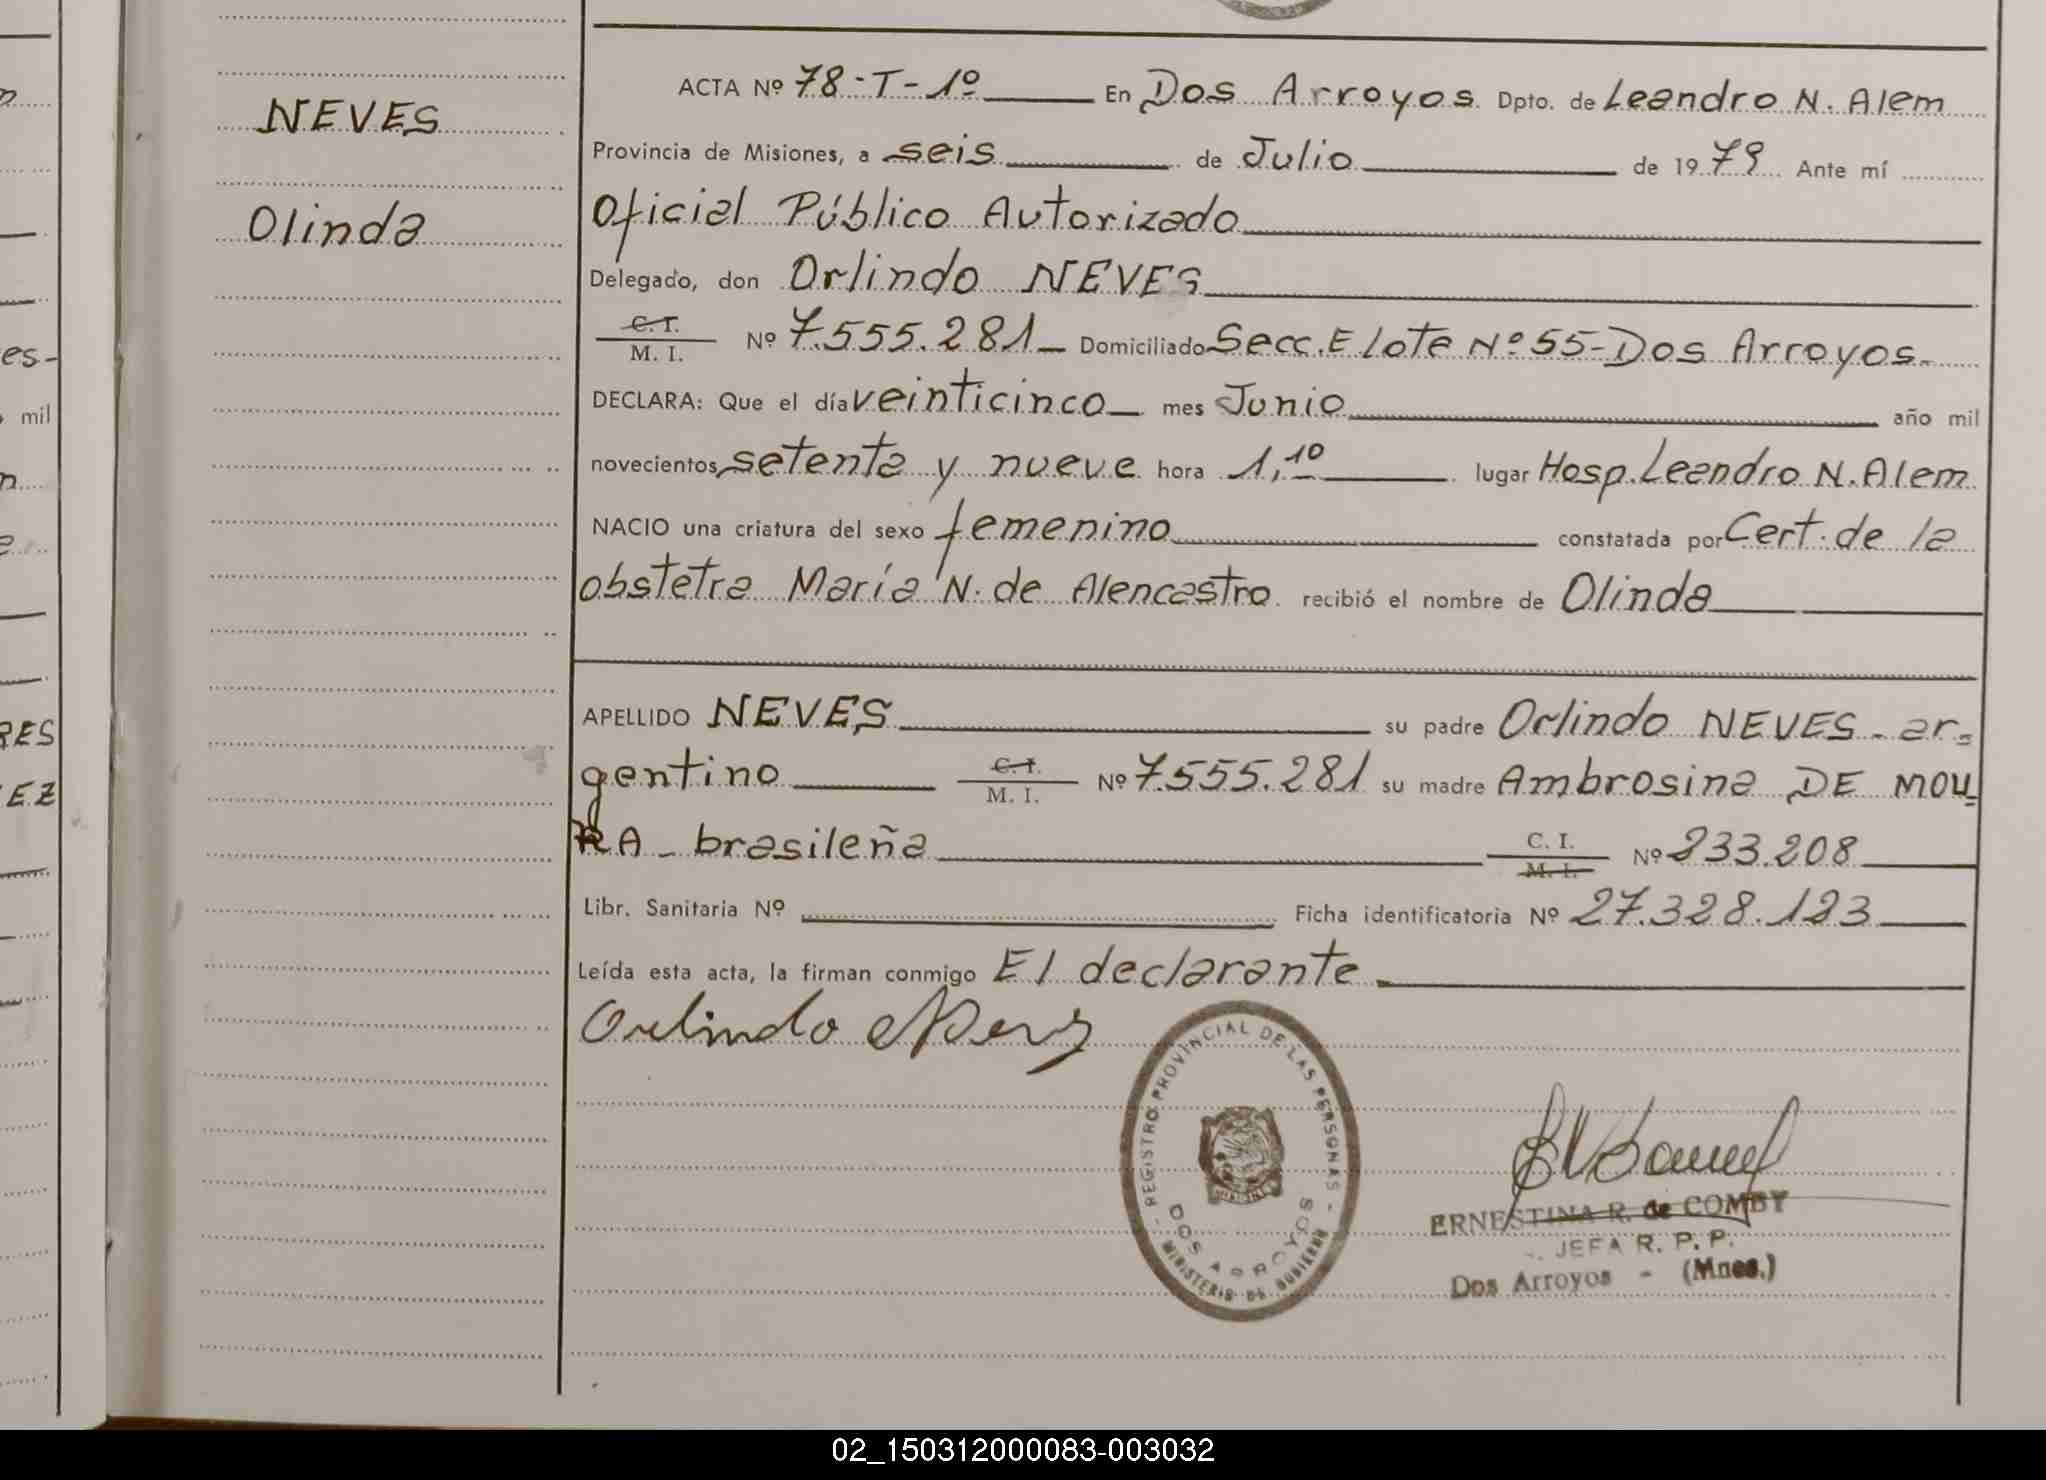 NEVES
Olinda
ACTA Nº 78-T-1º En Dos Arroyos Dpto. de Leandro N. Alem
Provincia de Misiones, a seis de Julio de 1979 Ante mí
Oficial Público Autorizado
Delegado, don Orlindo NEVES
C.I. M. I. Nº 7.555.281 Domiciliado Secc. E lote Nº 55-Dos Arroyos.
DECLARA: Que el día veinticinco mes Junio año mil
novecientos setenta y nueve hora 1,10 lugar Hosp. Leandro N. Alem
NACIO una criatura del sexo femenino constatada por Cert. de la
obstetra María N. de Alencastro recibió el nombre de Olinda
APELLIDO NEVES su padre Orlindo NEVES - ar=
gentino C.I. M. I. Nº 7.555.281 su madre Ambrosina DE MOU=
RA - brasileña C. I. M. I. Nº 233.208
Libr. Sanitaria Nº Ficha identificatoria Nº 27.328.123
Leída esta acta, la firman conmigo El declarante
Orlindo Neves
- REGISTRO PROVINCIAL DE LAS PERSONAS -
DOS ARROYOS
MINISTERIO DE GOBIERNO
ERNESTINA R. de COMBY
JEFA R. P. P.
Dos Arroyos - (Mnes.)
es-
mil
RES
EZ
02_150312000083-003032